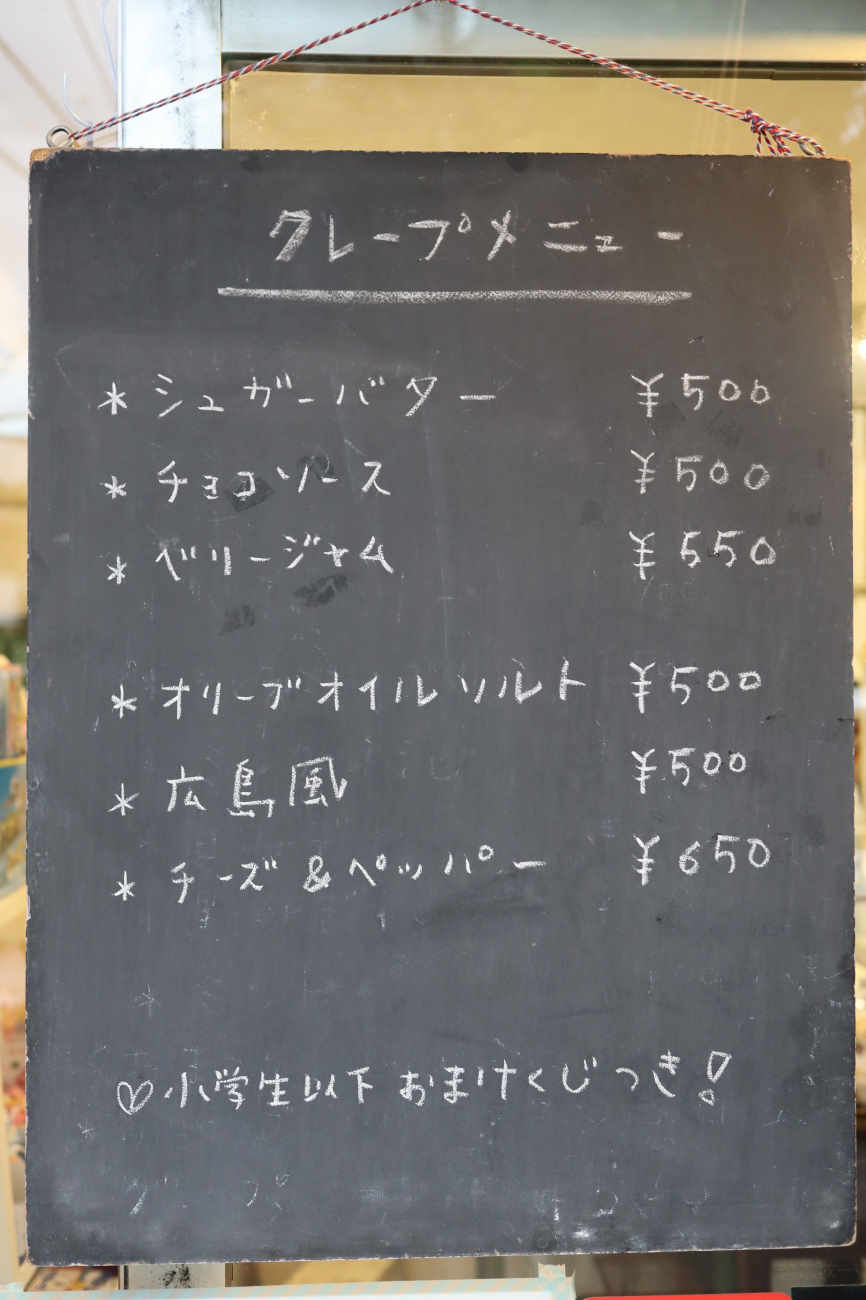 クレープメニュー
* シュガーバター ¥500
* チョコソース ¥500
* ベリージャム ¥550
* オリーブオイルソルト ¥500
* 広島風 ¥500
* チーズ&ペッパー ¥650
♡小学生以下 おまけくじつき!